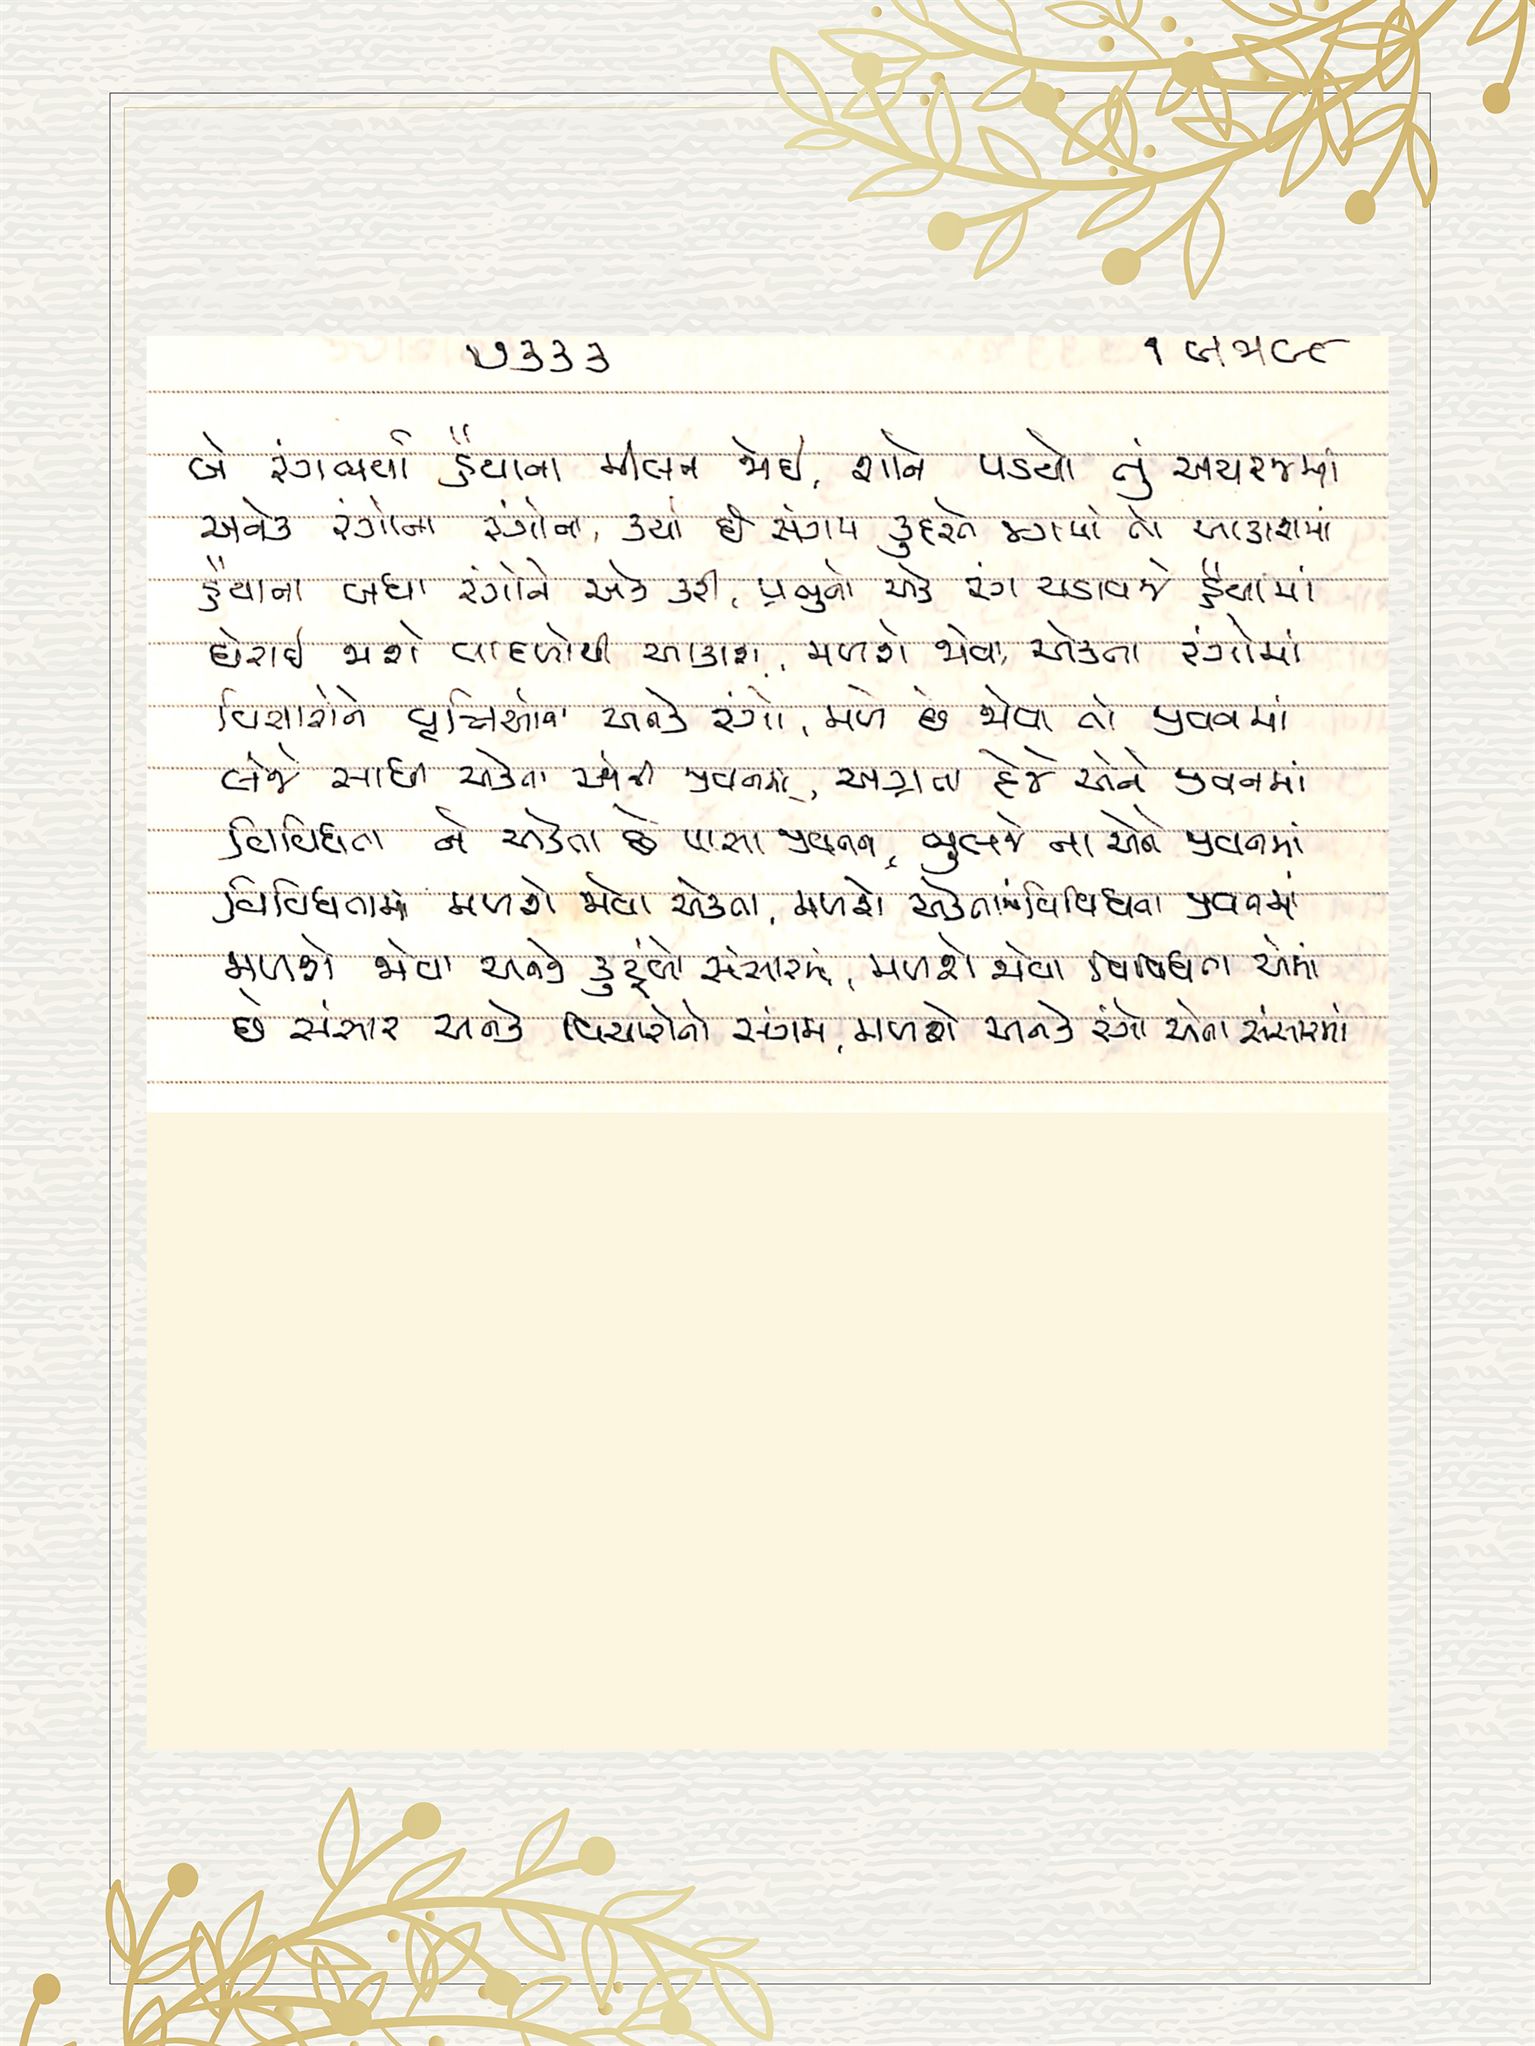 ૭૩૩૩
બે રંગબેરંગી હૈયાના મીલન જોઈ, શાને પડયો તું અચરજમાં
અનેક રંગોના રંગોના, કર્યા છે સંગમ કુદરતે જગમાં તો આકાશમાં
હૈયાના બધા રંગોને એક કરી, પ્રભુનો એક રંગ ચડાવજે હૈયામાં
ઘેરાઈ જાશે વાદળોથી આકાશ, મળશે જોવા એકના રંગોમાં
વિચારોને વૃત્તિઓના અનેક રંગો, મળે છે જોવા તો જીવનમાં
લેજે સાધી એકતા એની જીવનમાં, અગ્રતા દેજે એને જીવનમાં
વિવિધતા ને એકતા છે પાસા જીવનના, ભુલજે ના એને જીવનમાં
વિવિધતામાં મળશે જોવા એકતા, મળશે એકતામાં વિવિધતા જીવનમાં
મળશે જોવા અનેક કુટુંબો સંસારમાં, મળશે જોવા વિવિધતા એમાં
છે સંસાર અનેક વિચારોનો સંગમ, મળશે અનેક રંગો એના સંસારમાં